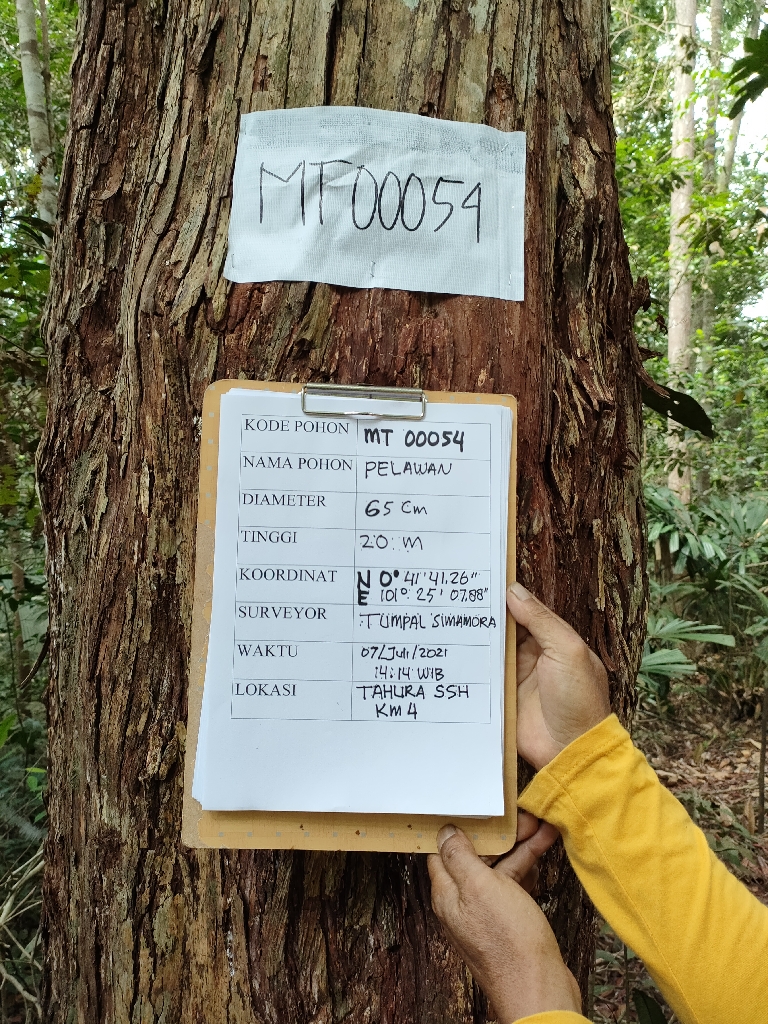 MT00054
KODE POHON MT 00054
NAMA POHON PELAWAN
DIAMETER 65 Cm
TINGGI 20 m
KOORDINAT N 0° 41' 41.26"
E 101° 25' 07.88"
SURVEYOR TUMPAL SIMAMORA
WAKTU 07/Juli/2021
14:14 WIB
LOKASI TAHURA SSH
Km 4